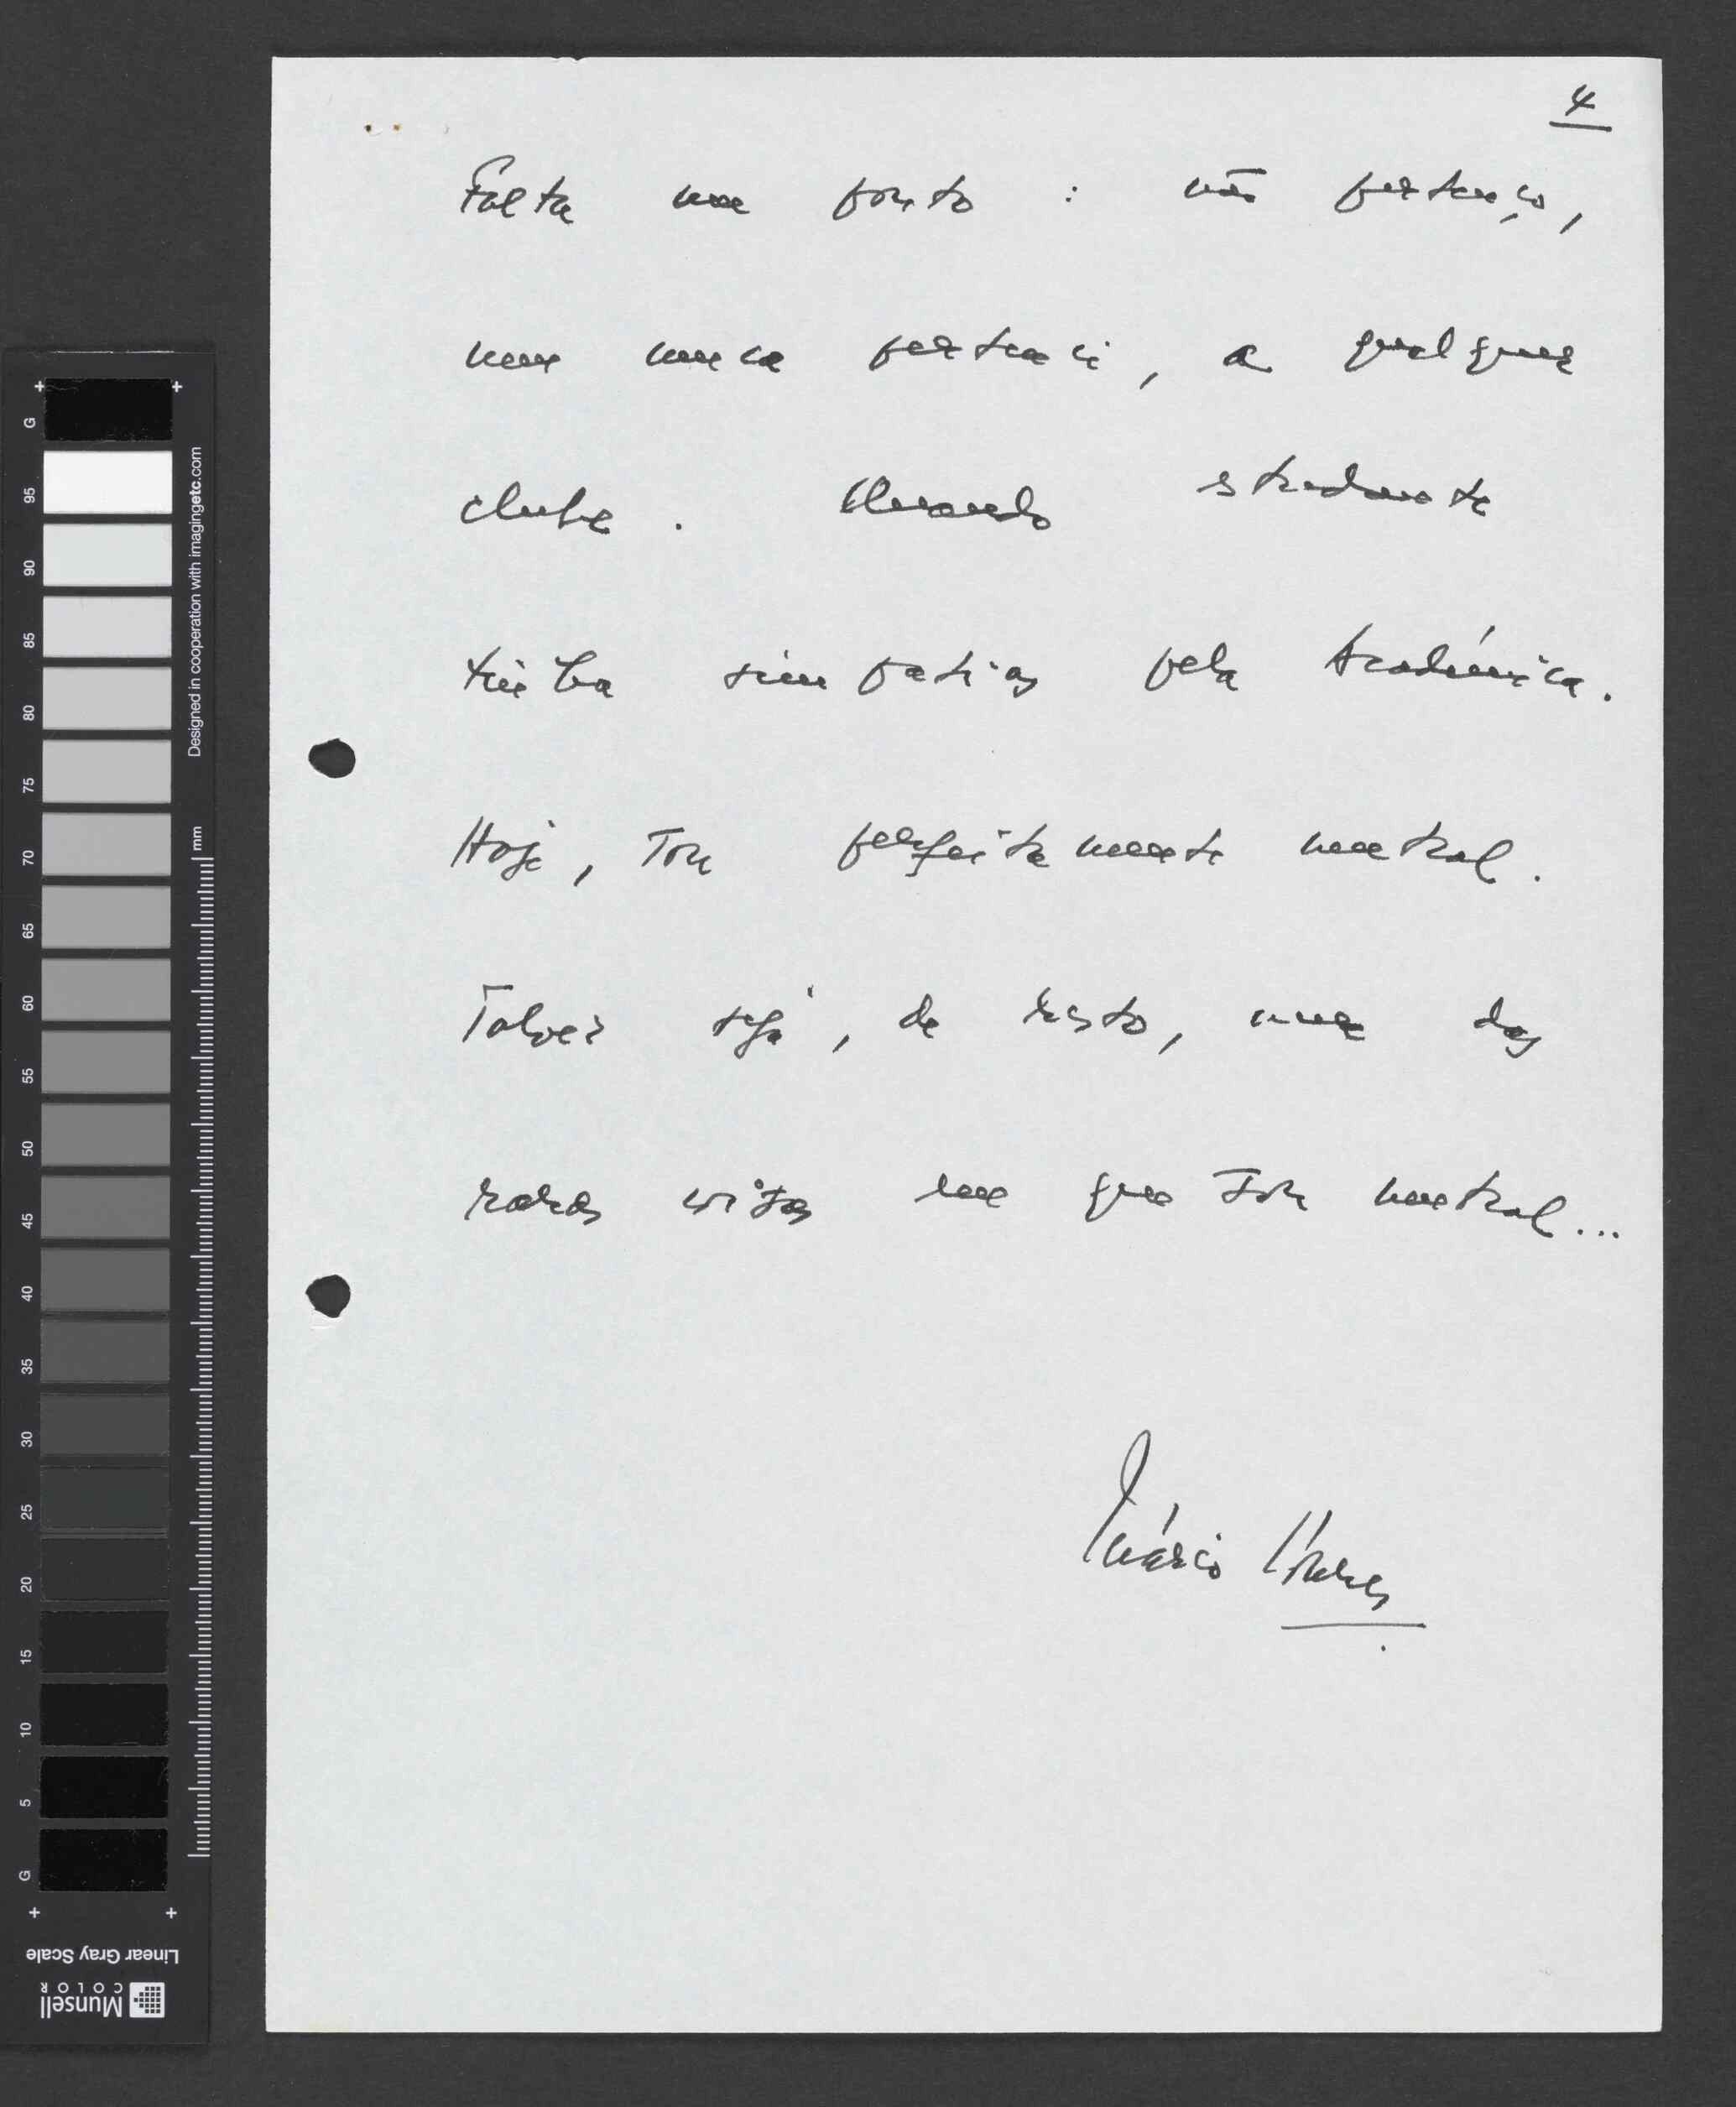 4
Falta um ponto : não pertenço,
nem nunca pertenci, a qualquer
clube. Quando estudante
tinha simpatias pela Académica.
Hoje, sou perfeitamente neutral.
Talvez seja, de resto, uma das
raras coisas em que sou neutral...
Mário Soares
G
95
90
85
80
75
70
65
60
55
50
45
40
35
30
25
20
15
10
5
G
Designed in cooperation with imagingetc.com
mm
Linear Gray Scale
Munsell
COLOR